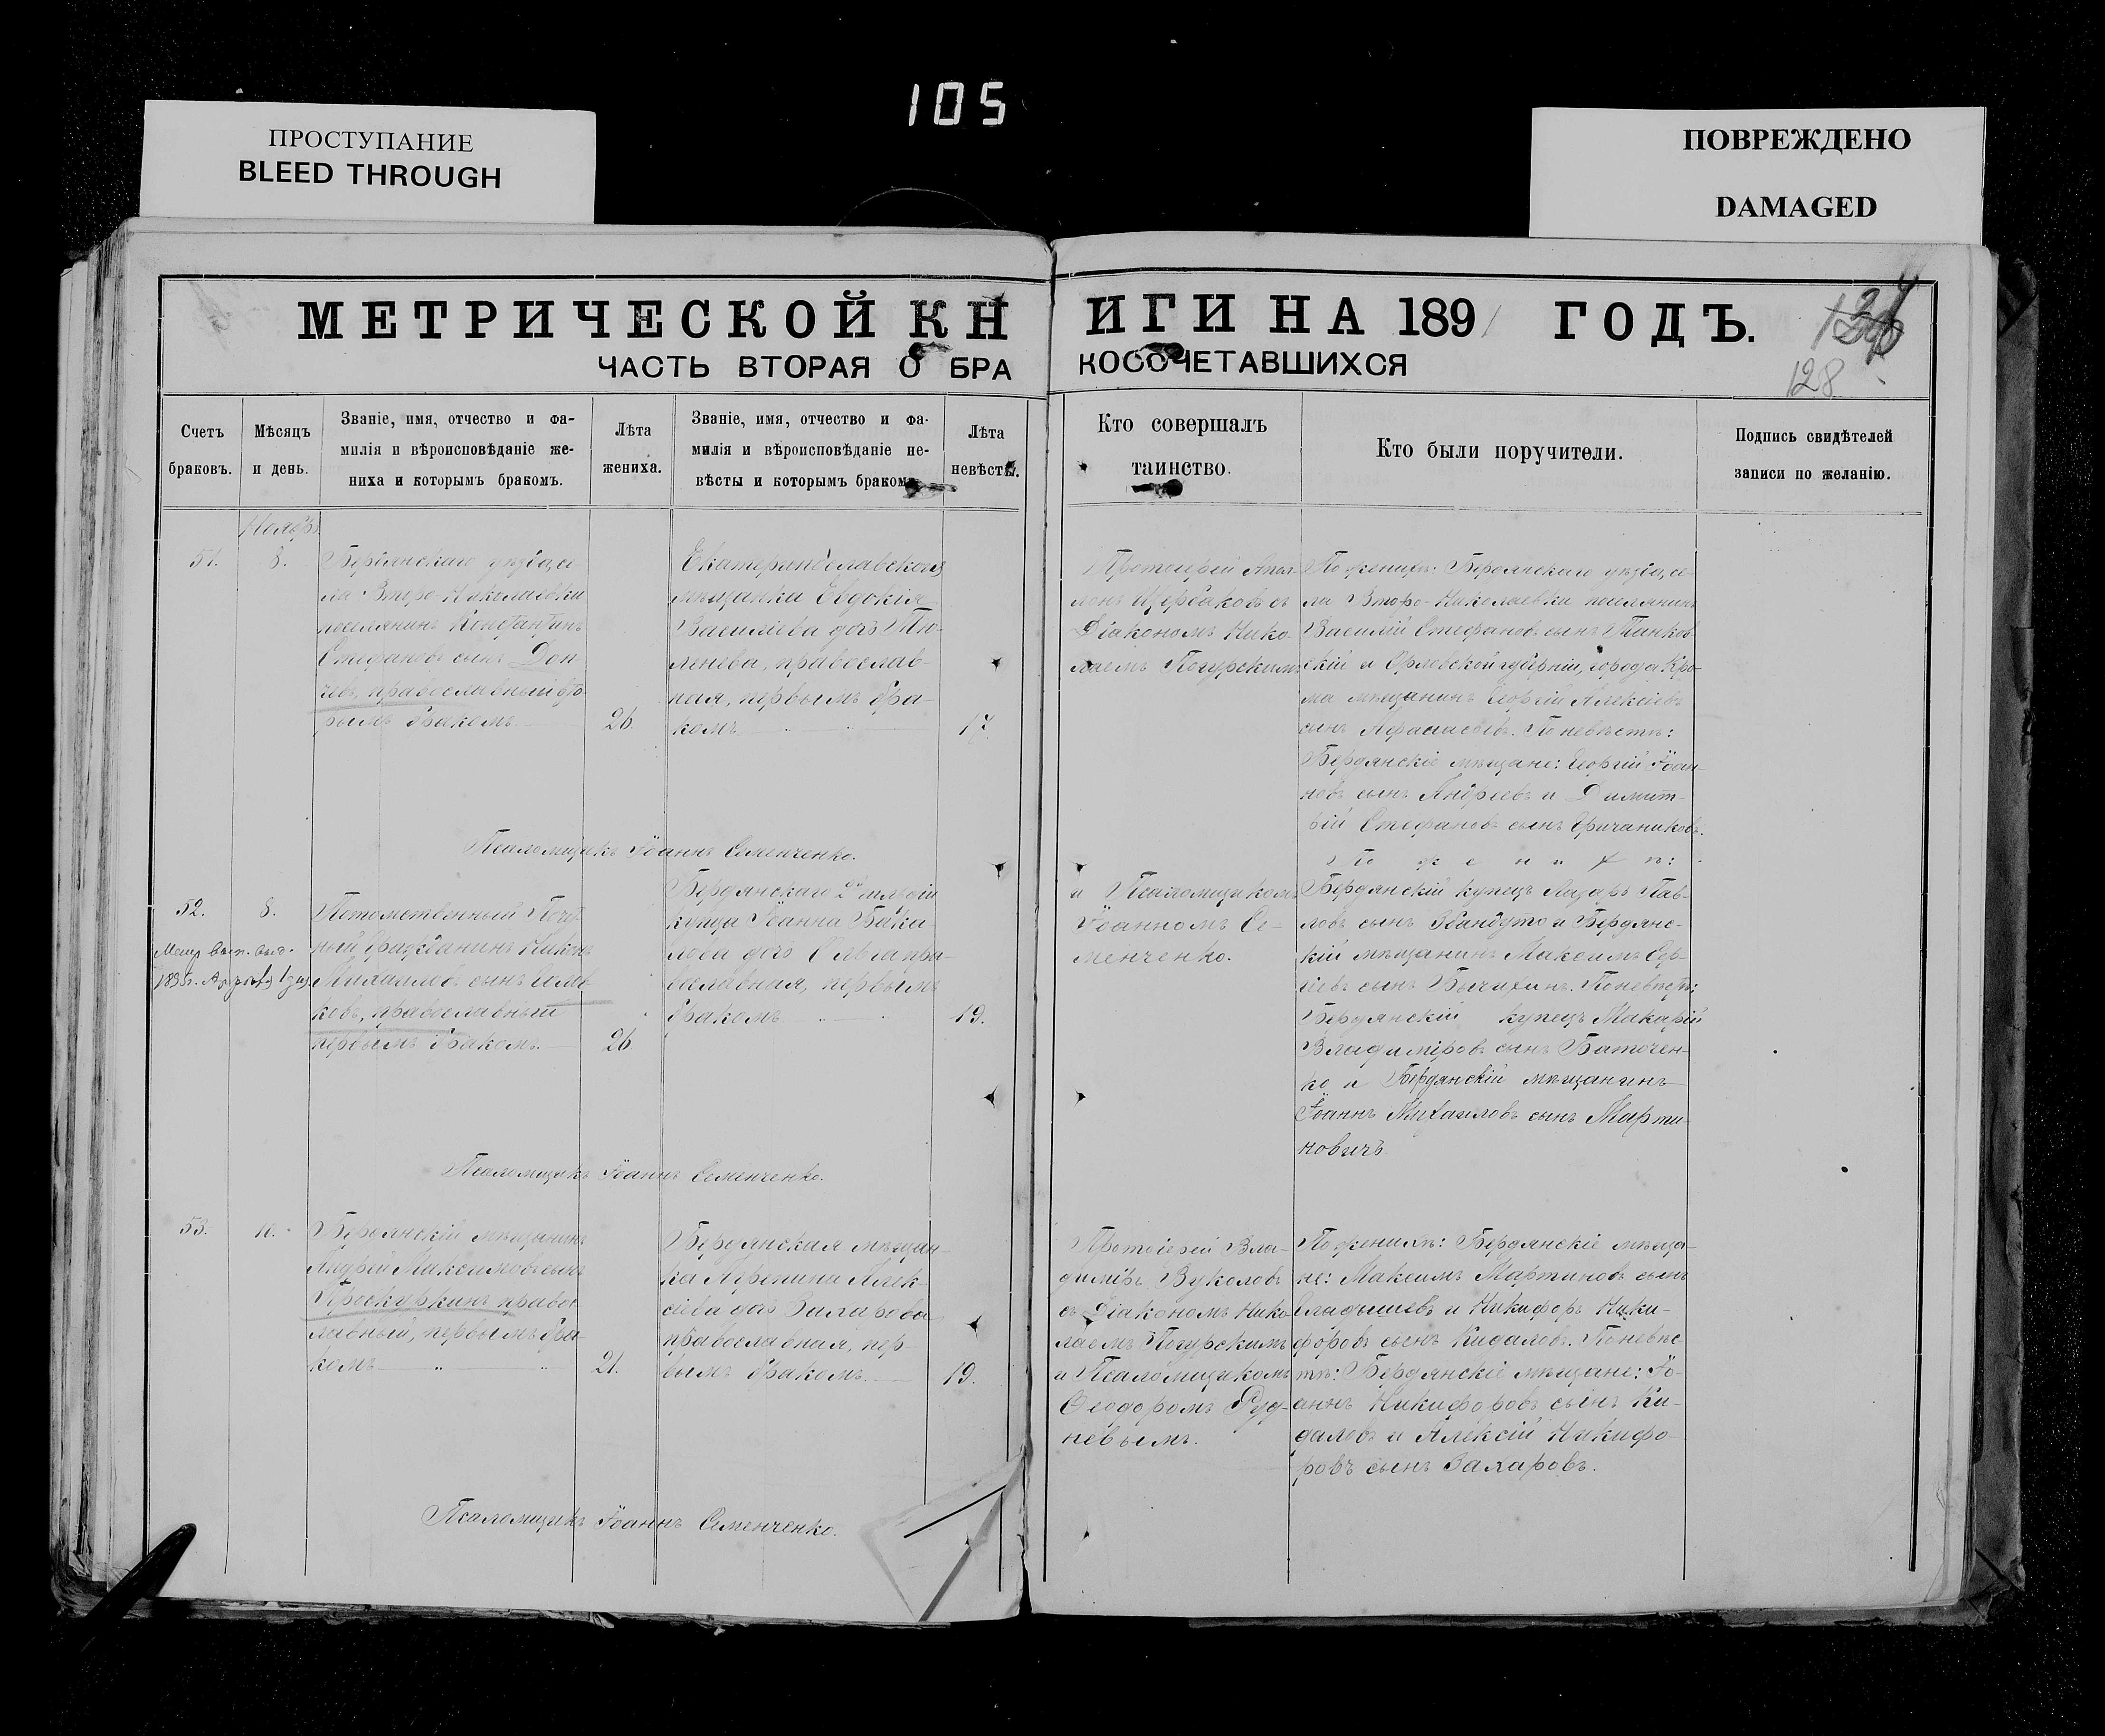 105
ПРОСТУПАНИЕ
BLEED THROUGH
ПОВРЕЖДЕНО
DAMAGED
МЕТРИЧЕСКОЙ КНИГИ НА 1891 ГОДЪ.
ЧАСТЬ ВТОРАЯ О БРАКОСОЧЕТАВШИХСЯ
128
Счетъ
браковъ.
Мѣсяцъ
и день.
Званіе, имя, отчество и фа-
милія и вѣроисповѣданіе же-
ниха и которымъ бракомъ.
Лѣта
жениха.
Званіе, имя, отчество и фа-
милія и вѣроисповѣданіе не-
вѣсты и которымъ бракомъ
Лѣта
невѣсты.
Кто совершалъ
таинство.
Кто были поручители.
Подпись свидѣтелей
записи по желанію.
Ноябрь
51.
8.
Бердянскаго уѣзда, се
ла Второ-Николаевки
поселянинъ Константинъ
Стефановъ сынъ Дон
чевъ, православный вто
рымъ бракомъ
26.
Екатеринославской
мѣщанки Евдокія
Васильева дочь
православ-
ная, первымъ бра-
комъ
17
Протоіерей
съ
Діакономъ Нико-
лаемъ Погурскимъ
По женихѣ: Бердянскаго уѣзда, се-
ла Второ-Николаевки поселянинъ
Василій Стефановъ сынъ Танков
скій и Орловской губерніи, города Кро-
ма мѣщанинъ Георгій Алексіевъ
сынъ Афанасьевъ. По невѣстѣ:
Бердянскіе мѣщане: Георгій Іоан-
новъ сынъ Андреевъ и Димит-
рій Стефановъ сынъ
Псаломщикъ Іоаннъ Семенченко.
52.
8.
Потомственный Почет
ный Гражданинъ Никонъ
Михаиловъ сынъ
ковъ, православный
первымъ бракомъ.
26
Бердянскаго 2й гильдіи
купца Іоанна
дочь Ольга пра-
вославная, первымъ
бракомъ
19.
и Псаломщикомъ
Іоанномъ Се-
менченко.
По женихѣ:
Бердянскій купецъ Лазарь Пав-
ловъ сынъ и Бердянс-
кій мѣщанинъ Максимъ
сынъ По невѣстѣ:
Бердянскій купецъ Макарій
Владиміровъ сынъ Баточен-
ко и Бердянскій мѣщанинъ
Іоаннъ Михаиловъ сынъ Марти-
новичъ
Псаломщикъ Іоаннъ Семенченко.
53.
Бердянскій мѣщанинъ
Андрей Максимовъ сынъ
Проскуркинъ правос
лавный, первымъ бра-
комъ
21.
Бердянская мѣщан
ка Агрепина Алек-
сіева дочь Захарова
православная, пер-
вымъ бракомъ.
19.
Протоіерей Вла-
димiръ Вуколовъ
съ Діакономъ Нико
лаемъ Погурскимъ
и Псаломщикомъ
Ѳеодоромъ Руд-
невымъ.
По женихѣ: Бердянскіе мѣща-
не: Максимъ Мартиновъ сынъ
и Никифоръ Ники-
форовъ сынъ Кидаловъ. По невѣс
тѣ: Бердянскіе мѣщане: Іо-
аннъ Никифоровъ сынъ Ки-
даловъ и Алексій Никифо-
ровъ сынъ Захаровъ.
Псаломщикъ Іоаннъ Семенченко.